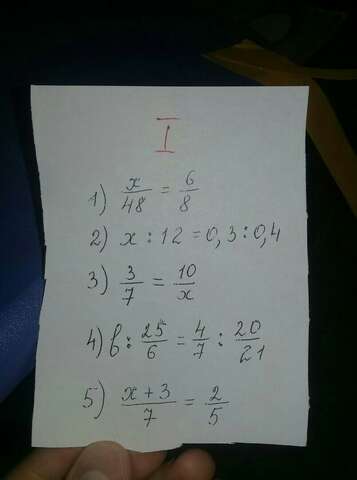 I
1) x/48 = 6/8
2) x : 12 = 0,3 : 0,4
3) 3/7 = 10/x
4) b : 25/6 = 4/7 : 20/21
5) (x + 3)/7 = 2/5